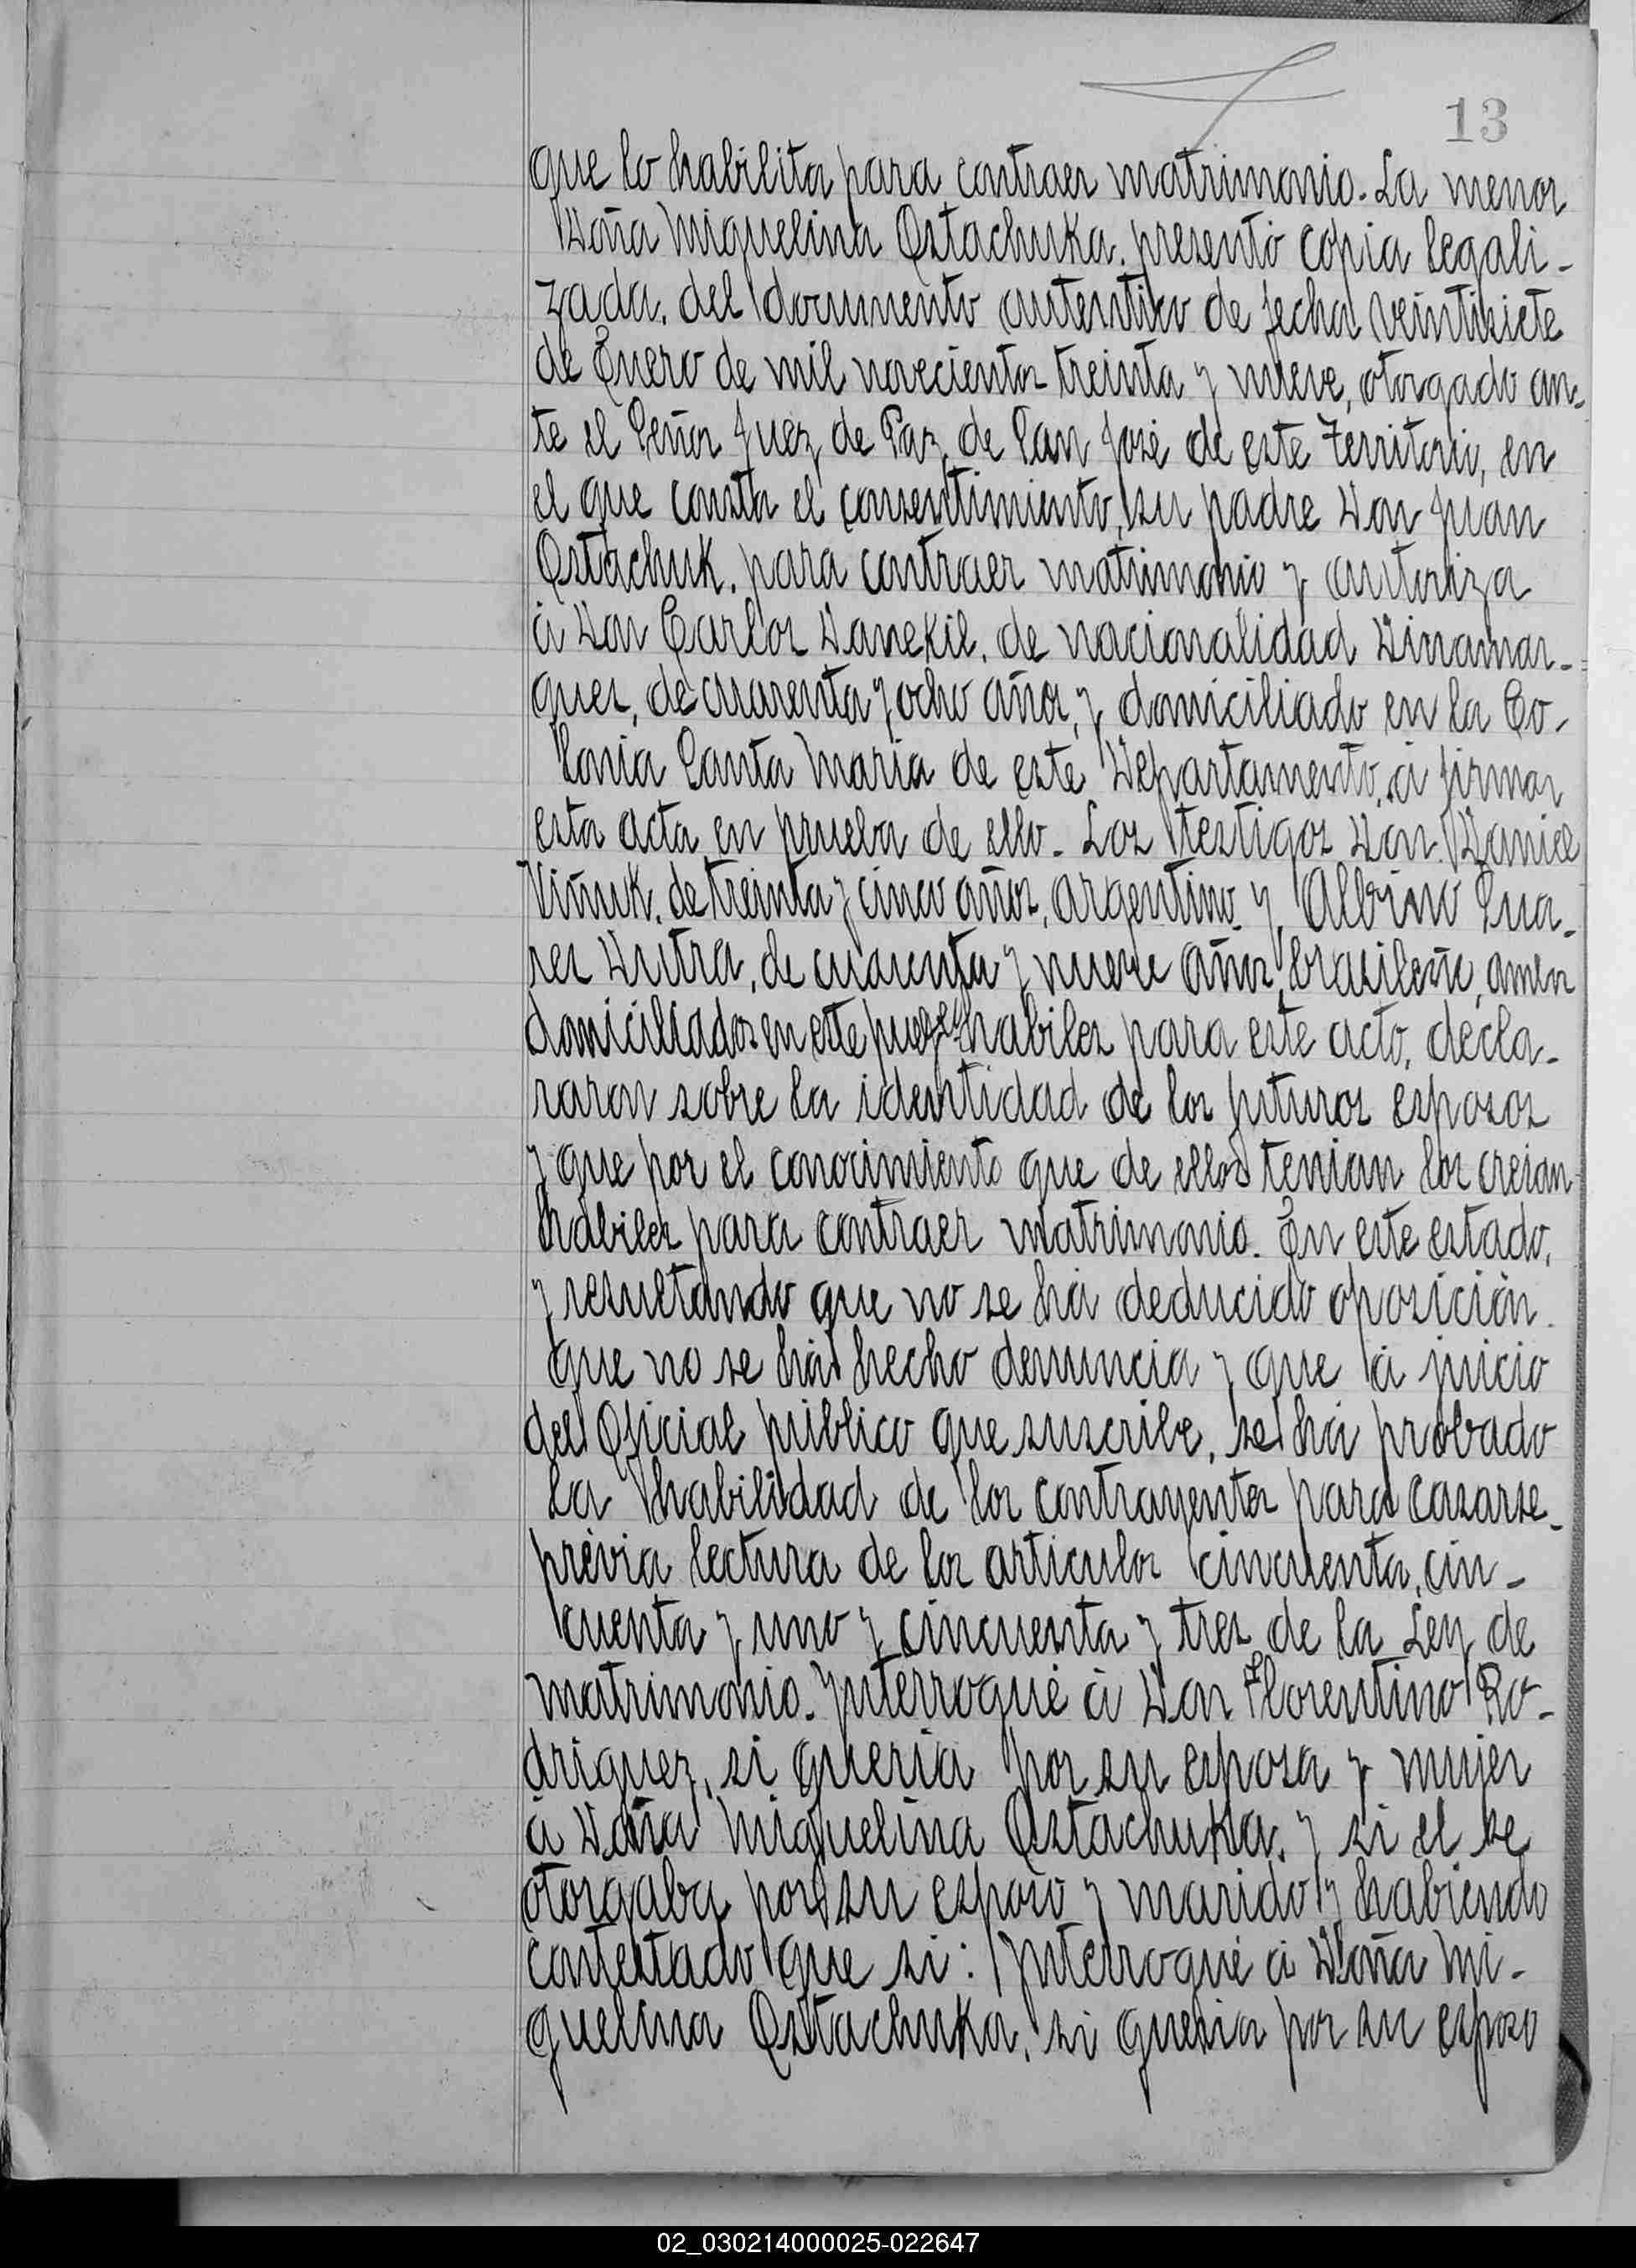 13
que lo habilita para contraer matrimonio. La menor
Doña Miguelina Ostachuka. presentó copia legali-
zada. del documento autentiko de fecha veintisiete
de Enero de mil novecientos treinta y nueve, otorgado an-
te el Señor Juez de Paz de San José de este Territorio, en
el que consta el consentimiento, su padre Don Juan
Ostachuk. para contraer matrimonio y autoriza
á Don Carlos Danekil. de nacionalidad Dinamar-
ques, de cuarenta y ocho años, y domiciliado en la Co-
lonia Santa Maria de este Departamento, á firmar
esta acta en prueba de ello. Los testigos Don Daniel
Viñuk. de treinta y cinco años, argentino y Albino Sua-
res Dutra, de cuarenta y nueve años, brasileño,
domiciliados en este habiles para este acto, decla-
raron sobre la identidad de los futuros esposos
y que por el conocimiento que de ellos tenian los creian
habiles para contraer matrimonio. En este estado,
y resultando que no se há deducido oposición.
que no se há hecho denuncia y que á juicio
del Oficial público que suscribe, se há probado
la habilidad de los contrayentes para casarse-
prévia lectura de los articulos cincuenta, cin-
cuenta y uno y cincuenta y tres de la Ley de
matrimonio. Ynterrogué á Don Florentino Ro-
driguez, si queria por su esposa y mujer
á Doña Miguelina Ostachuka. y si el se
otorgaba por su esposo y marido y habiendo
contestado que si: Ynterrogué á Doña Mi-
guelina Ostachuka, si queria por su esposo
02_030214000025-022647